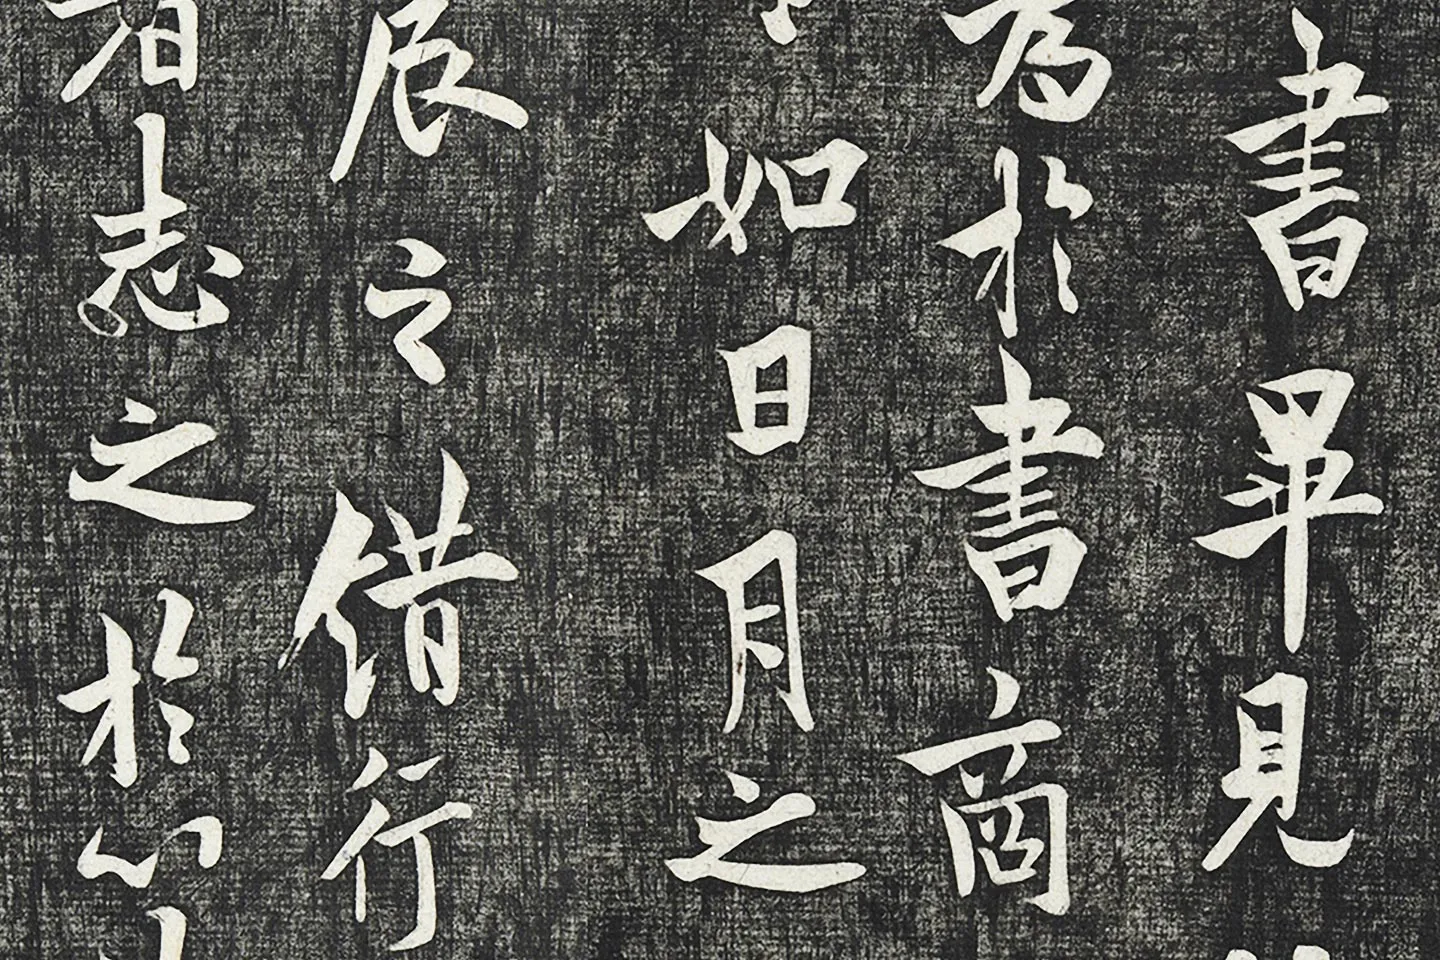 書畢見
為於書商
如日月之
辰之錯行
者志之於心